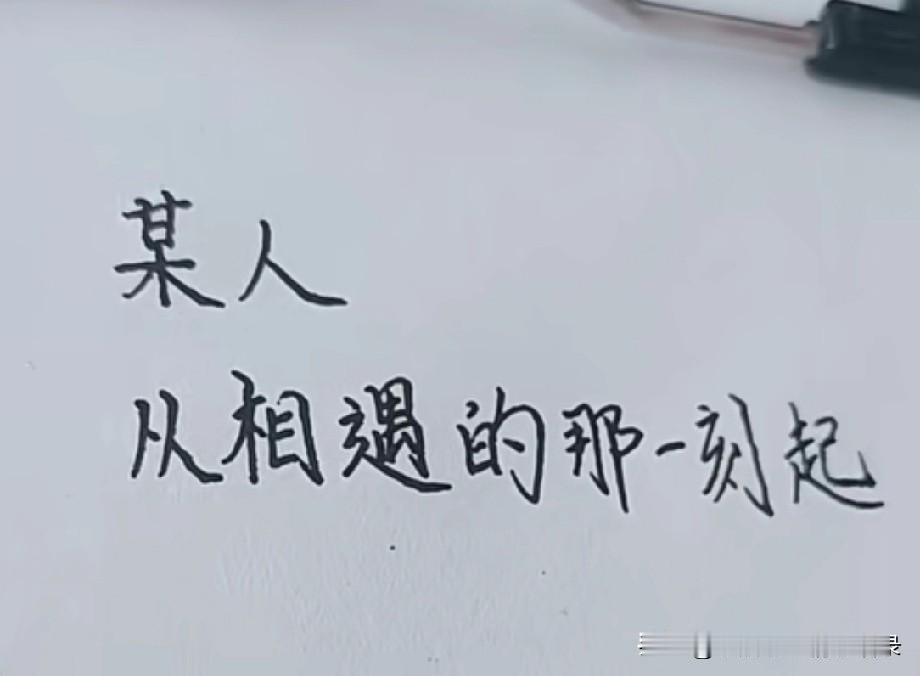 某人
从相遇的那一刻起